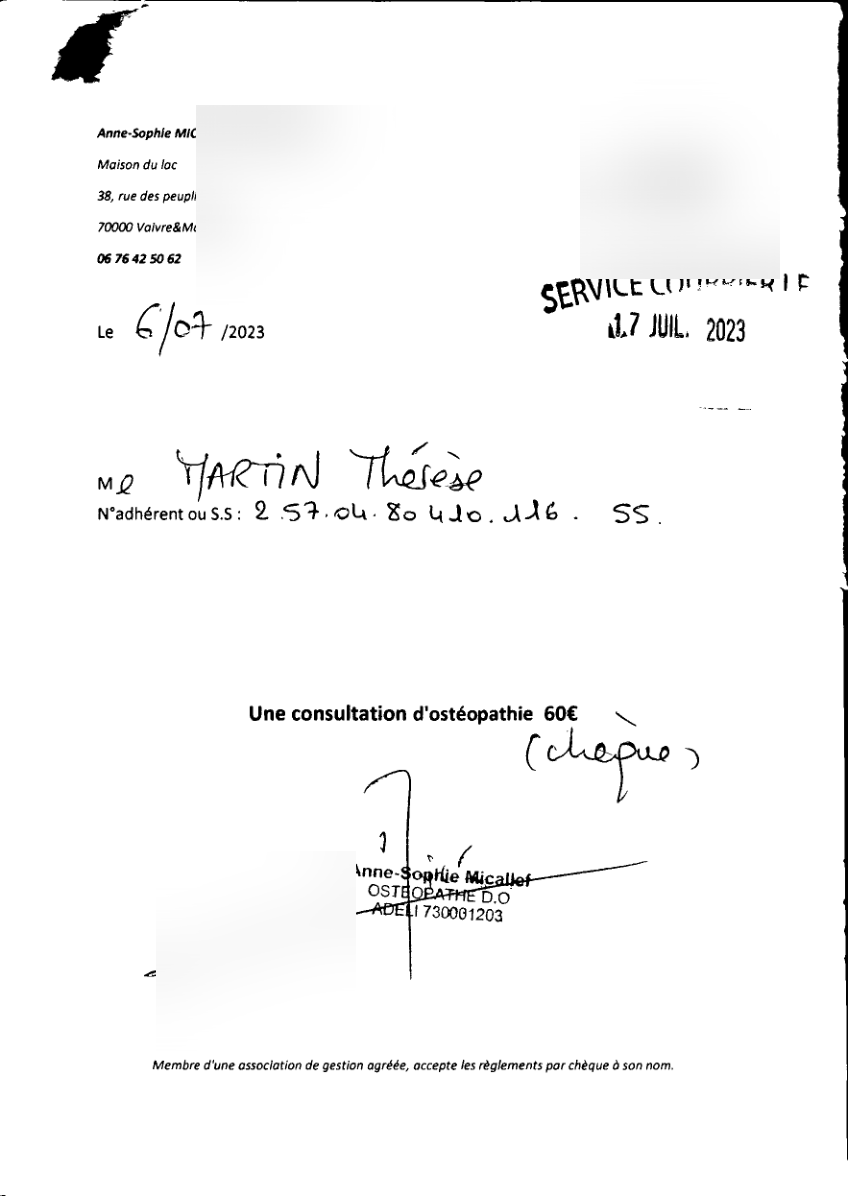 Anne-Sophie MIC
Maison du lac
38, rue des peupli
70000 Vaivre&Mo
06 76 42 50 62
SERVICE COURRIER
17 JUIL. 2023
Le 6/07/2023
Me MARTIN Thérèse
N°adhérent ou S.S : 2 57.04.80 410.116. SS.
Une consultation d'ostéopathie 60€
(chèque)
Anne-Sophie Micallef
OSTEOPATHE D.O
ADELI 730001203
Membre d'une association de gestion agréée, accepte les règlements par chèque à son nom.